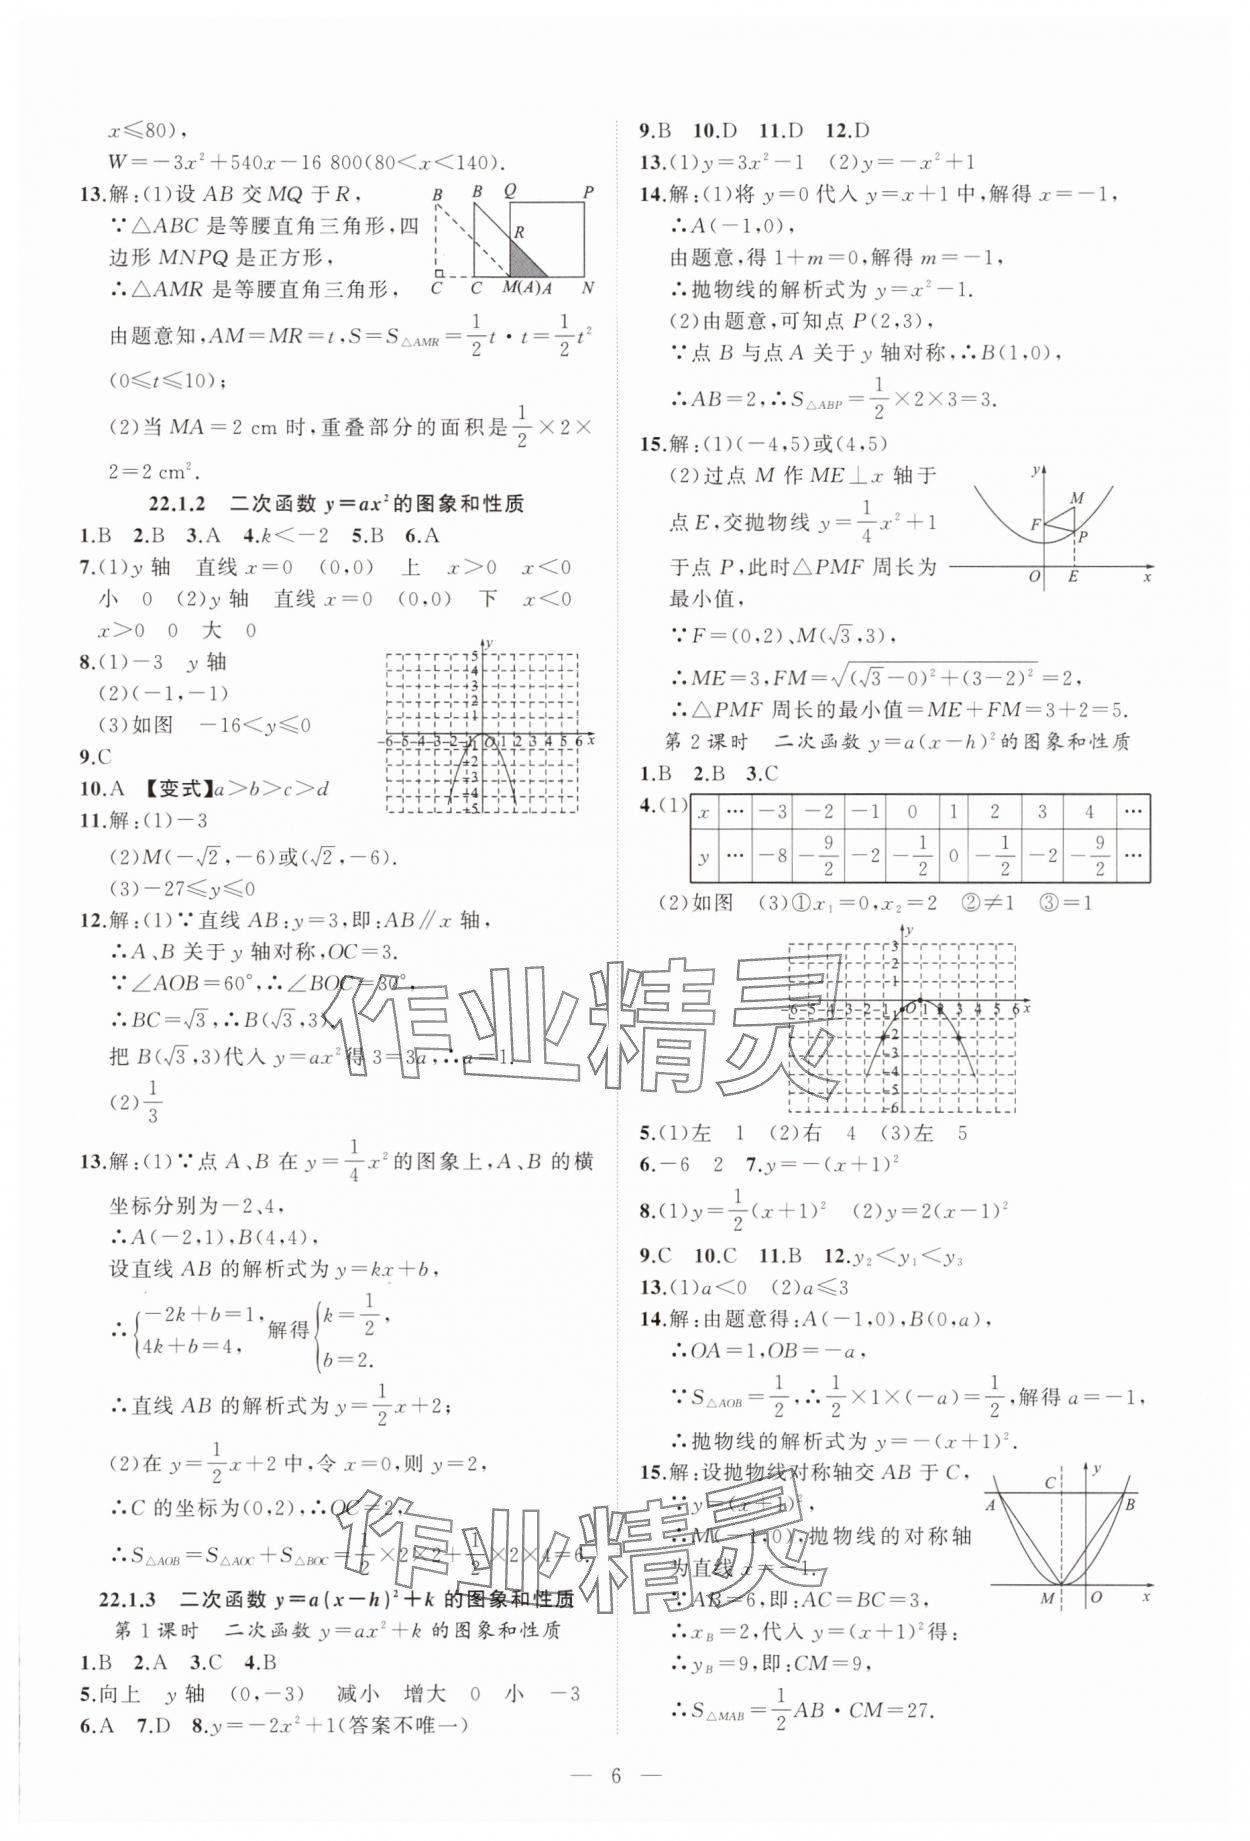 x≤80),
W=-3x²+540x-16 800(80<x<140).
13.解:(1)设 AB 交 MQ 于 R,
∵△ABC 是等腰直角三角形,四
边形 MNPQ 是正方形,
∴△AMR 是等腰直角三角形,
B B Q P
R
C C M(A) A N
由题意知,AM=MR=t,S=S△AMR=1/2 t·t=1/2 t²
(0≤t≤10);
(2)当 MA=2 cm 时,重叠部分的面积是 1/2 ×2×
2=2 cm².
22.1.2 二次函数 y=ax² 的图象和性质
1.B 2.B 3.A 4.k<-2 5.B 6.A
7.(1)y 轴 直线 x=0 (0,0) 上 x>0 x<0
小 0 (2)y 轴 直线 x=0 (0,0) 下 x<0
x>0 0 大 0
8.(1)-3 y 轴
(2)(-1,-1)
(3)如图 -16<y≤0
9.C
10.A 【变式】a>b>c>d
11.解:(1)-3
(2)M(-√2,-6)或(√2,-6).
(3)-27≤y≤0
12.解:(1)∵直线 AB:y=3,即:AB∥x 轴,
∴A、B 关于 y 轴对称,OC=3.
∵∠AOB=60°,∴∠BOC=30°,
∴BC=√3,∴B(√3,3),
把 B(√3,3)代入 y=ax² 得 3=3a,∴a=1.
(2)1/3
13.解:(1)∵点 A、B 在 y=1/4 x² 的图象上,A、B 的横
坐标分别为-2、4,
∴A(-2,1),B(4,4),
设直线 AB 的解析式为 y=kx+b,
∴{-2k+b=1, 4k+b=4, 解得{k=1/2, b=2.
∴直线 AB 的解析式为 y=1/2 x+2;
(2)在 y=1/2 x+2 中,令 x=0,则 y=2,
∴C 的坐标为(0,2),∴OC=2,
∴S△AOB=S△AOC+S△BOC=1/2×2×2+1/2×2×4=6.
22.1.3 二次函数 y=a(x-h)²+k 的图象和性质
第 1 课时 二次函数 y=ax²+k 的图象和性质
1.B 2.A 3.C 4.B
5.向上 y 轴 (0,-3) 减小 增大 0 小 -3
6.A 7.D 8.y=-2x²+1(答案不唯一)
9.B 10.D 11.D 12.D
13.(1)y=3x²-1 (2)y=-x²+1
14.解:(1)将 y=0 代入 y=x+1 中,解得 x=-1,
∴A(-1,0),
由题意,得 1+m=0,解得 m=-1,
∴抛物线的解析式为 y=x²-1.
(2)由题意,可知点 P(2,3),
∵点 B 与点 A 关于 y 轴对称,∴B(1,0),
∴AB=2,∴S△ABP=1/2×2×3=3.
15.解:(1)(-4,5)或(4,5)
(2)过点 M 作 ME⊥x 轴于
点 E,交抛物线 y=1/4 x²+1
于点 P,此时△PMF 周长为
最小值,
y
M
F
P
O E x
∵F=(0,2)、M(√3,3),
∴ME=3,FM=√((√3-0)²+(3-2)²)=2,
∴△PMF 周长的最小值=ME+FM=3+2=5.
第 2 课时 二次函数 y=a(x-h)² 的图象和性质
1.B 2.B 3.C
4.(1) x … -3 -2 -1 0 1 2 3 4 …
y … -8 -9/2 -2 -1/2 0 -1/2 -2 -9/2 …
(2)如图 (3)①x₁=0,x₂=2 ②≠1 ③=1
5.(1)左 1 (2)右 4 (3)左 5
6.-6 2 7.y=-(x+1)²
8.(1)y=1/2(x+1)² (2)y=2(x-1)²
9.C 10.C 11.B 12.y₂<y₁<y₃
13.(1)a<0 (2)a≤3
14.解:由题意得:A(-1,0),B(0,a),
∴OA=1,OB=-a,
∵S△AOB=1/2,∴1/2×1×(-a)=1/2,解得 a=-1,
∴抛物线的解析式为 y=-(x+1)².
15.解:设抛物线对称轴交 AB 于 C,
∵y=(x+1)²,
∴M(-1,0),抛物线的对称轴
为直线 x=-1.
∵AB=6,即:AC=BC=3,
∴x_B=2,代入 y=(x+1)² 得:
∴y_B=9,即:CM=9,
∴S△MAB=1/2 AB·CM=27.
C y
A B
M O x
作业精灵
作业精灵
— 6 —